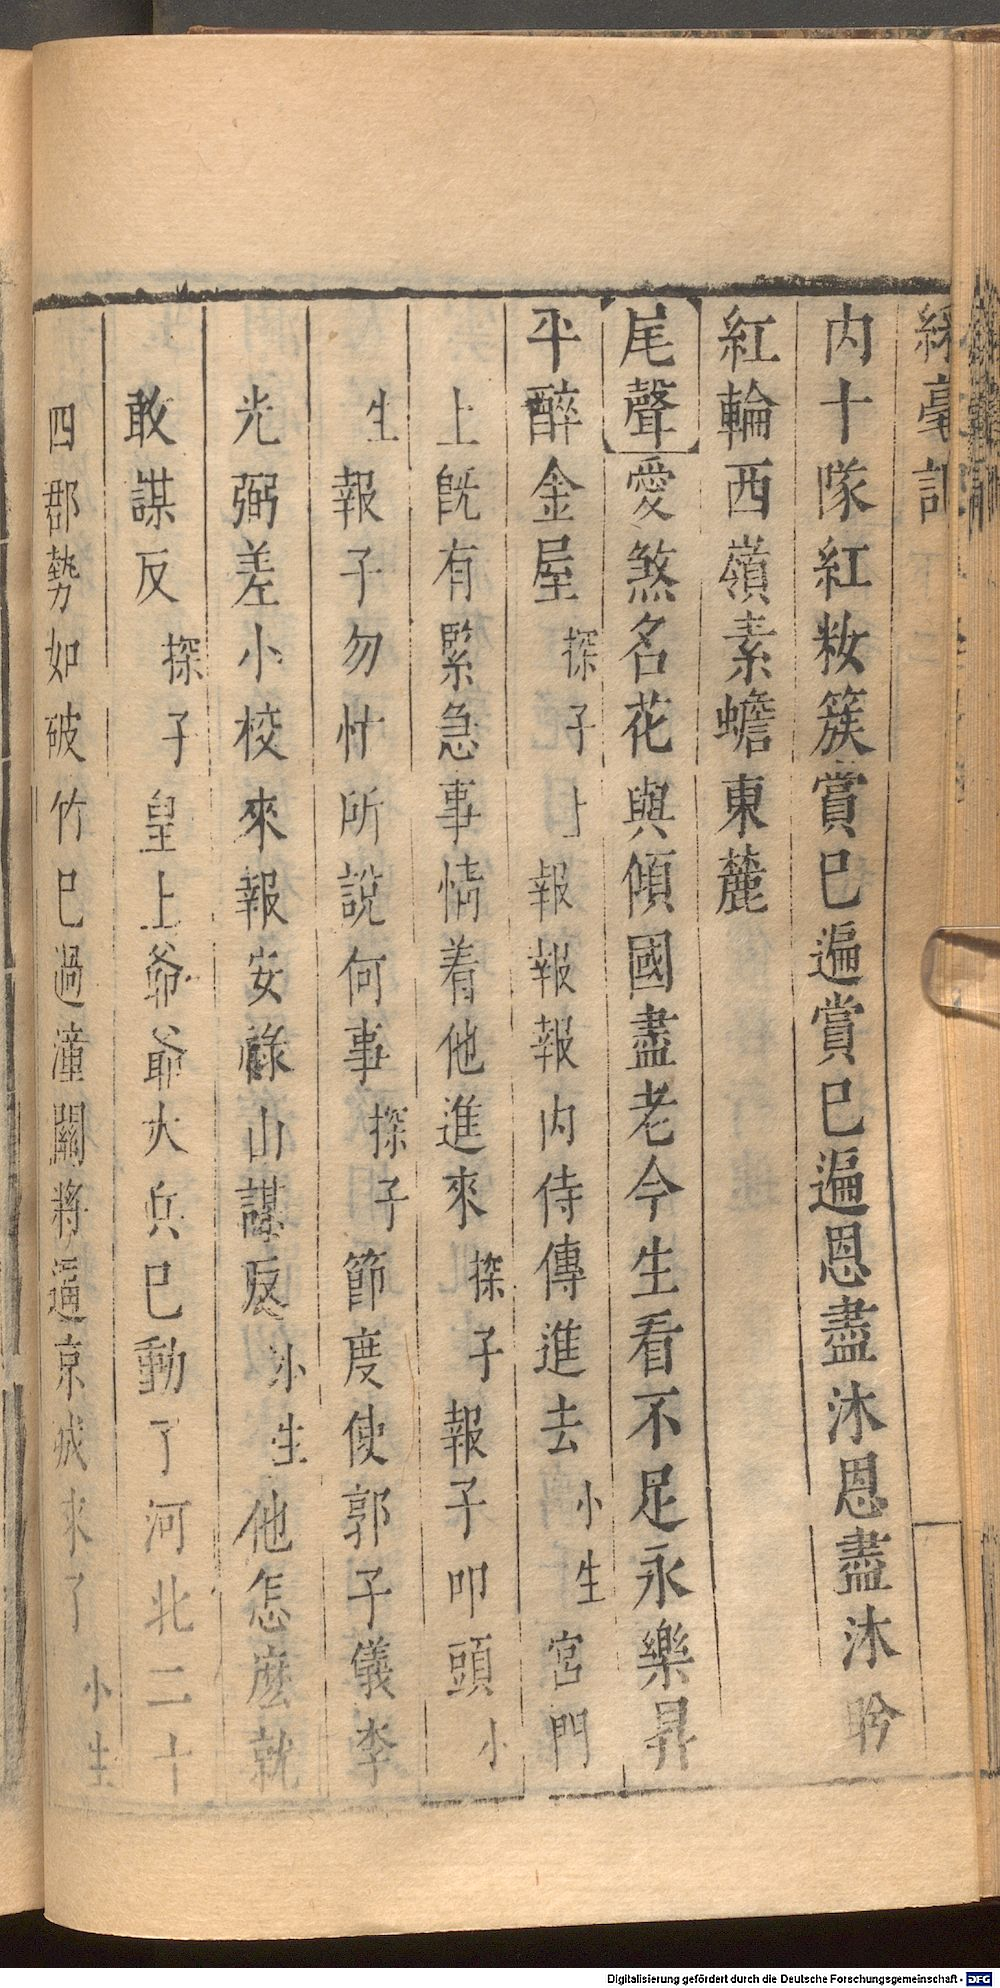 綵毫記
内十隊紅妝簇賞巳遍賞巳遍恩盡沐恩盡沐盻
紅輪西嶺素蟾東麓
尾聲愛煞名花與傾國盡老今生看不足永樂昇
平醉金屋探子上報報報内侍傳進去小生宮門
上旣有緊急事情着他進來探子報子叩頭小
生報子勿忙所說何事探子節度使郭子儀李
光弼差小校來報安祿山謀反小生他怎麽就
敢謀反探子皇上爺爺大兵巳動了河北二十
四郡勢如破竹巳過潼關將逼京城來了小生
Digitalisierung gefördert durch die Deutsche Forschungsgemeinschaft - DFG